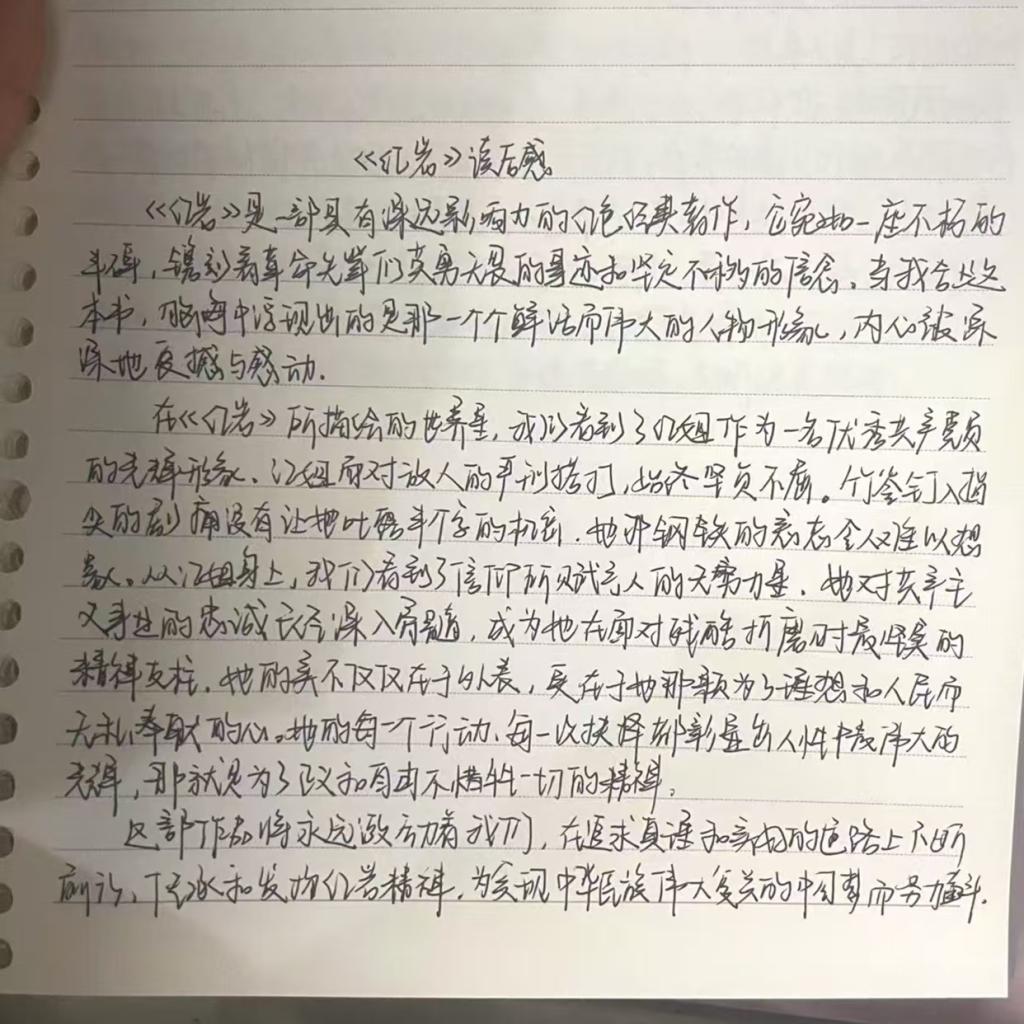 《红岩》读后感
《红岩》是一部具有深远影响力的红色经典著作，它宛如一座不朽的
丰碑，镌刻着革命先辈们英勇无畏的事迹和坚定不移的信念。当我合上这
本书，脑海中浮现出的是那一个个鲜活而伟大的人物形象，内心被深
深地震撼与感动.
在《红岩》所描绘的世界里，我们看到了江姐作为一名优秀共产党员
的光辉形象。江姐面对敌人的严刑拷打，始终坚贞不屈。竹签钉入指
尖的剧痛没有让她吐露半个字的机密.她那钢铁的意志令人难以想
象。从江姐身上，我们看到了信仰所赋予人的无穷力量。她对共产主
义事业的忠诚已经深入骨髓，成为她在面对残酷折磨时最坚实的
精神支柱.她的美不仅仅在于外表，更在于她那颗为了理想和人民而
无私奉献的心。她的每一个行动、每一次抉择都彰显出人性中最伟大的
光辉，那就是为了正义和自由不惜牺牲一切的精神。
这部作品将永远激励着我们，在追求真理和美好的道路上不断
前行，传承和发扬红岩精神，为实现中华民族伟大复兴的中国梦而努力奋斗.